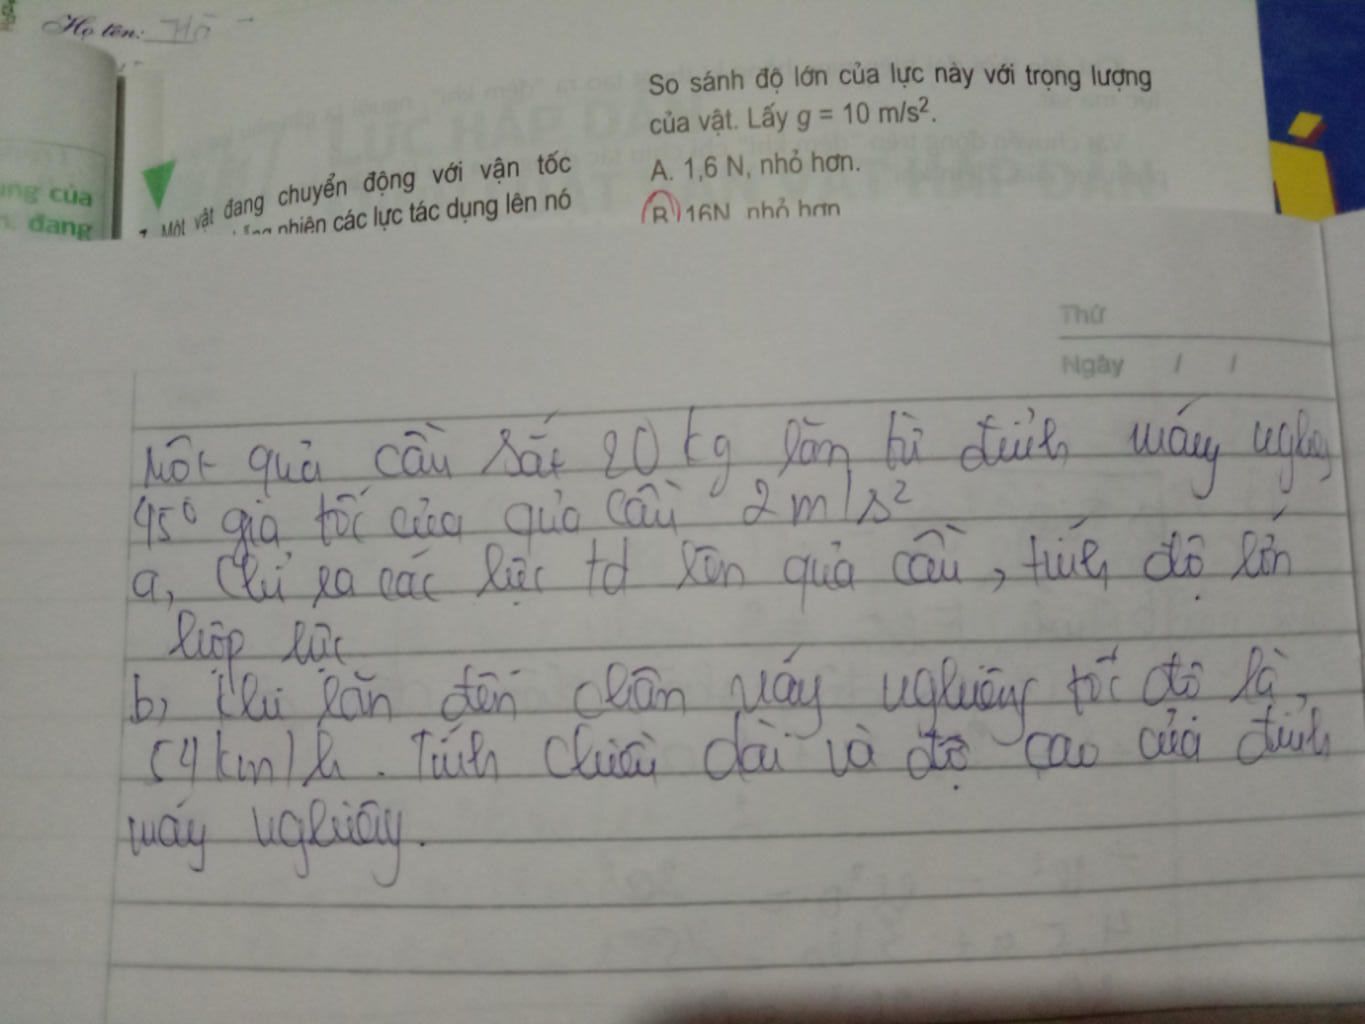 Họ tên: Hồ
So sánh độ lớn của lực này với trọng lượng
của vật. Lấy g = 10 m/s².
A. 1,6 N, nhỏ hơn.
B 16N nhỏ hơn
ng của
đang
Một vật đang chuyển động với vận tốc
nhiên các lực tác dụng lên nó
Thứ
Ngày / /
Một quả cầu sắt 20 kg lăn từ đỉnh máy nghiêng
45° gia tốc của quả cầu 2 m/s²
a, Chỉ ra các lực td lên quả cầu, tính độ lớn
hợp lực
b, Khi lăn đến chân máy nghiêng tốc độ là
54 km/h. Tính chiều dài và độ cao của đỉnh
máy nghiêng.